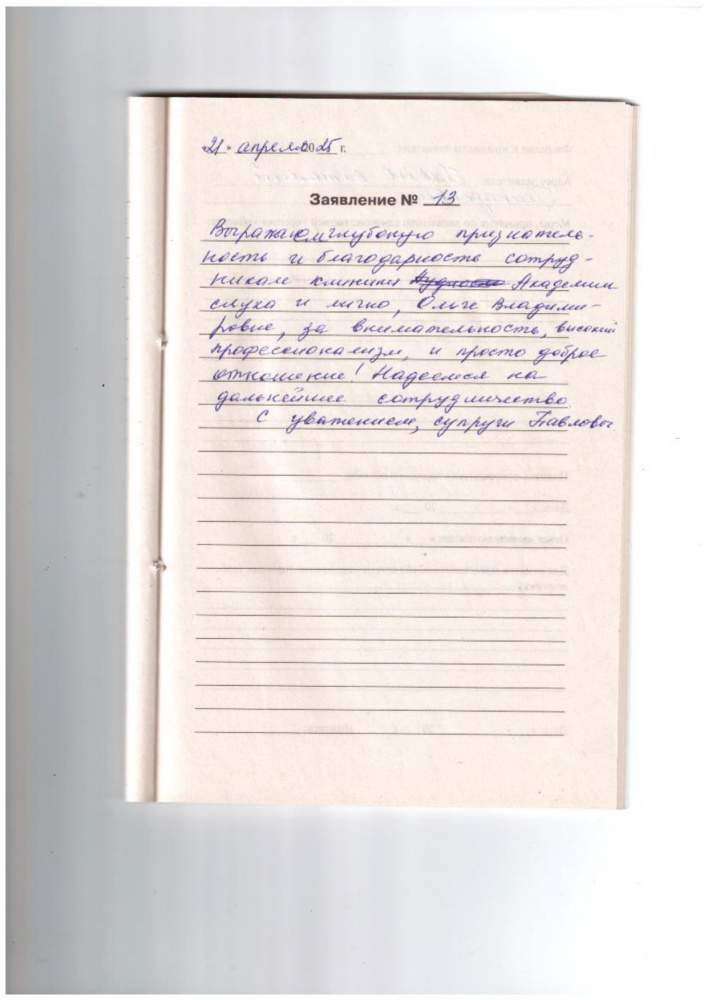 «21» апреля 2025 г.
Заявление № 13
Выражаем глубокую признатель-
ность и благодарность сотруд-
никам клиники Академии
слуха и лично, Ольге Владими-
ровне, за внимательность, высокий
профессионализм, и просто доброе
отношение! Надеемся на
дальнейшее сотрудничество.
С уважением, супруги Павловы